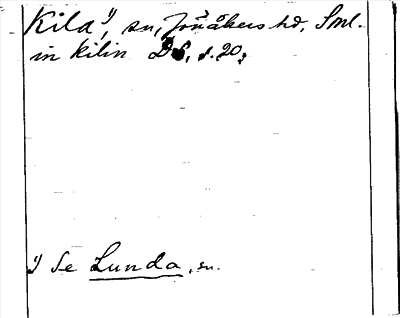 Kila ¹), sn, Jönåkers hd, Sml.
in kilin DS, s. 20,
¹) Se Lunda, sn.